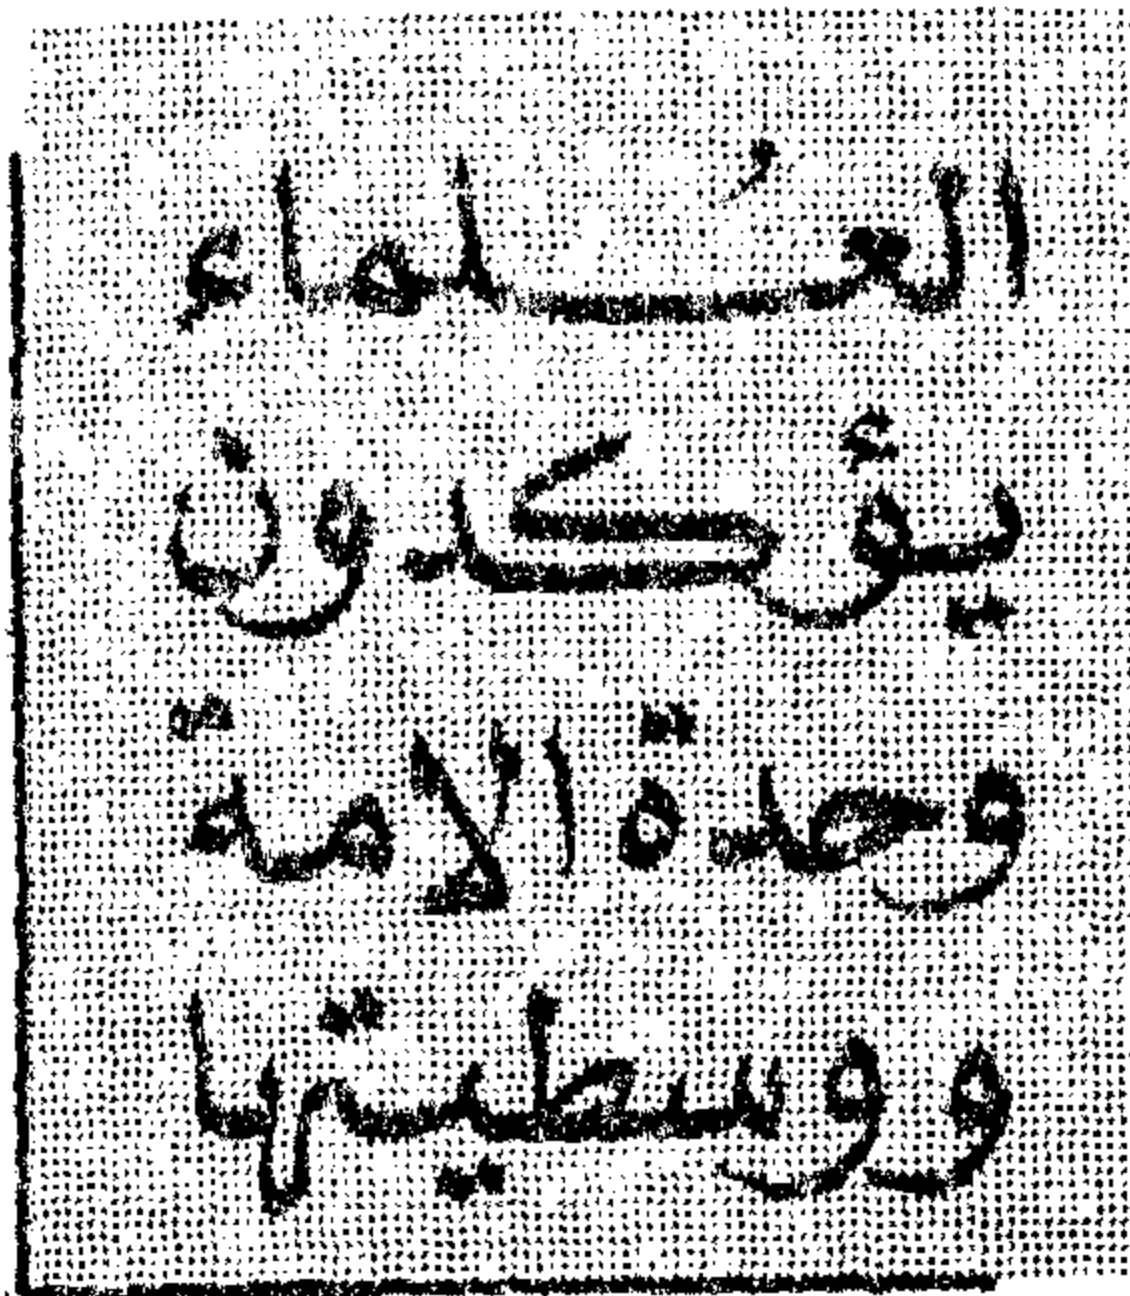 العُلماء
يؤكدون
وحدة الامة
ووسطيتها